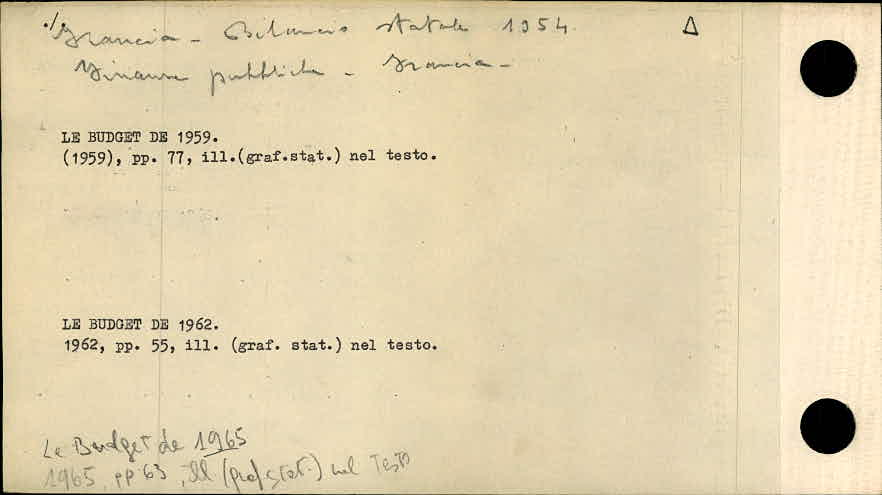 ./.
Francia - Bilancio statale 1954 Δ
Finanze pubbliche - Francia -
LE BUDGET DE 1959.
(1959), pp. 77, ill.(graf.stat.) nel testo.
LE BUDGET DE 1962.
1962, pp. 55, ill. (graf. stat.) nel testo.
Le Budget de 1965
1965, pp 63, ill (graf.stat.) nel Testo